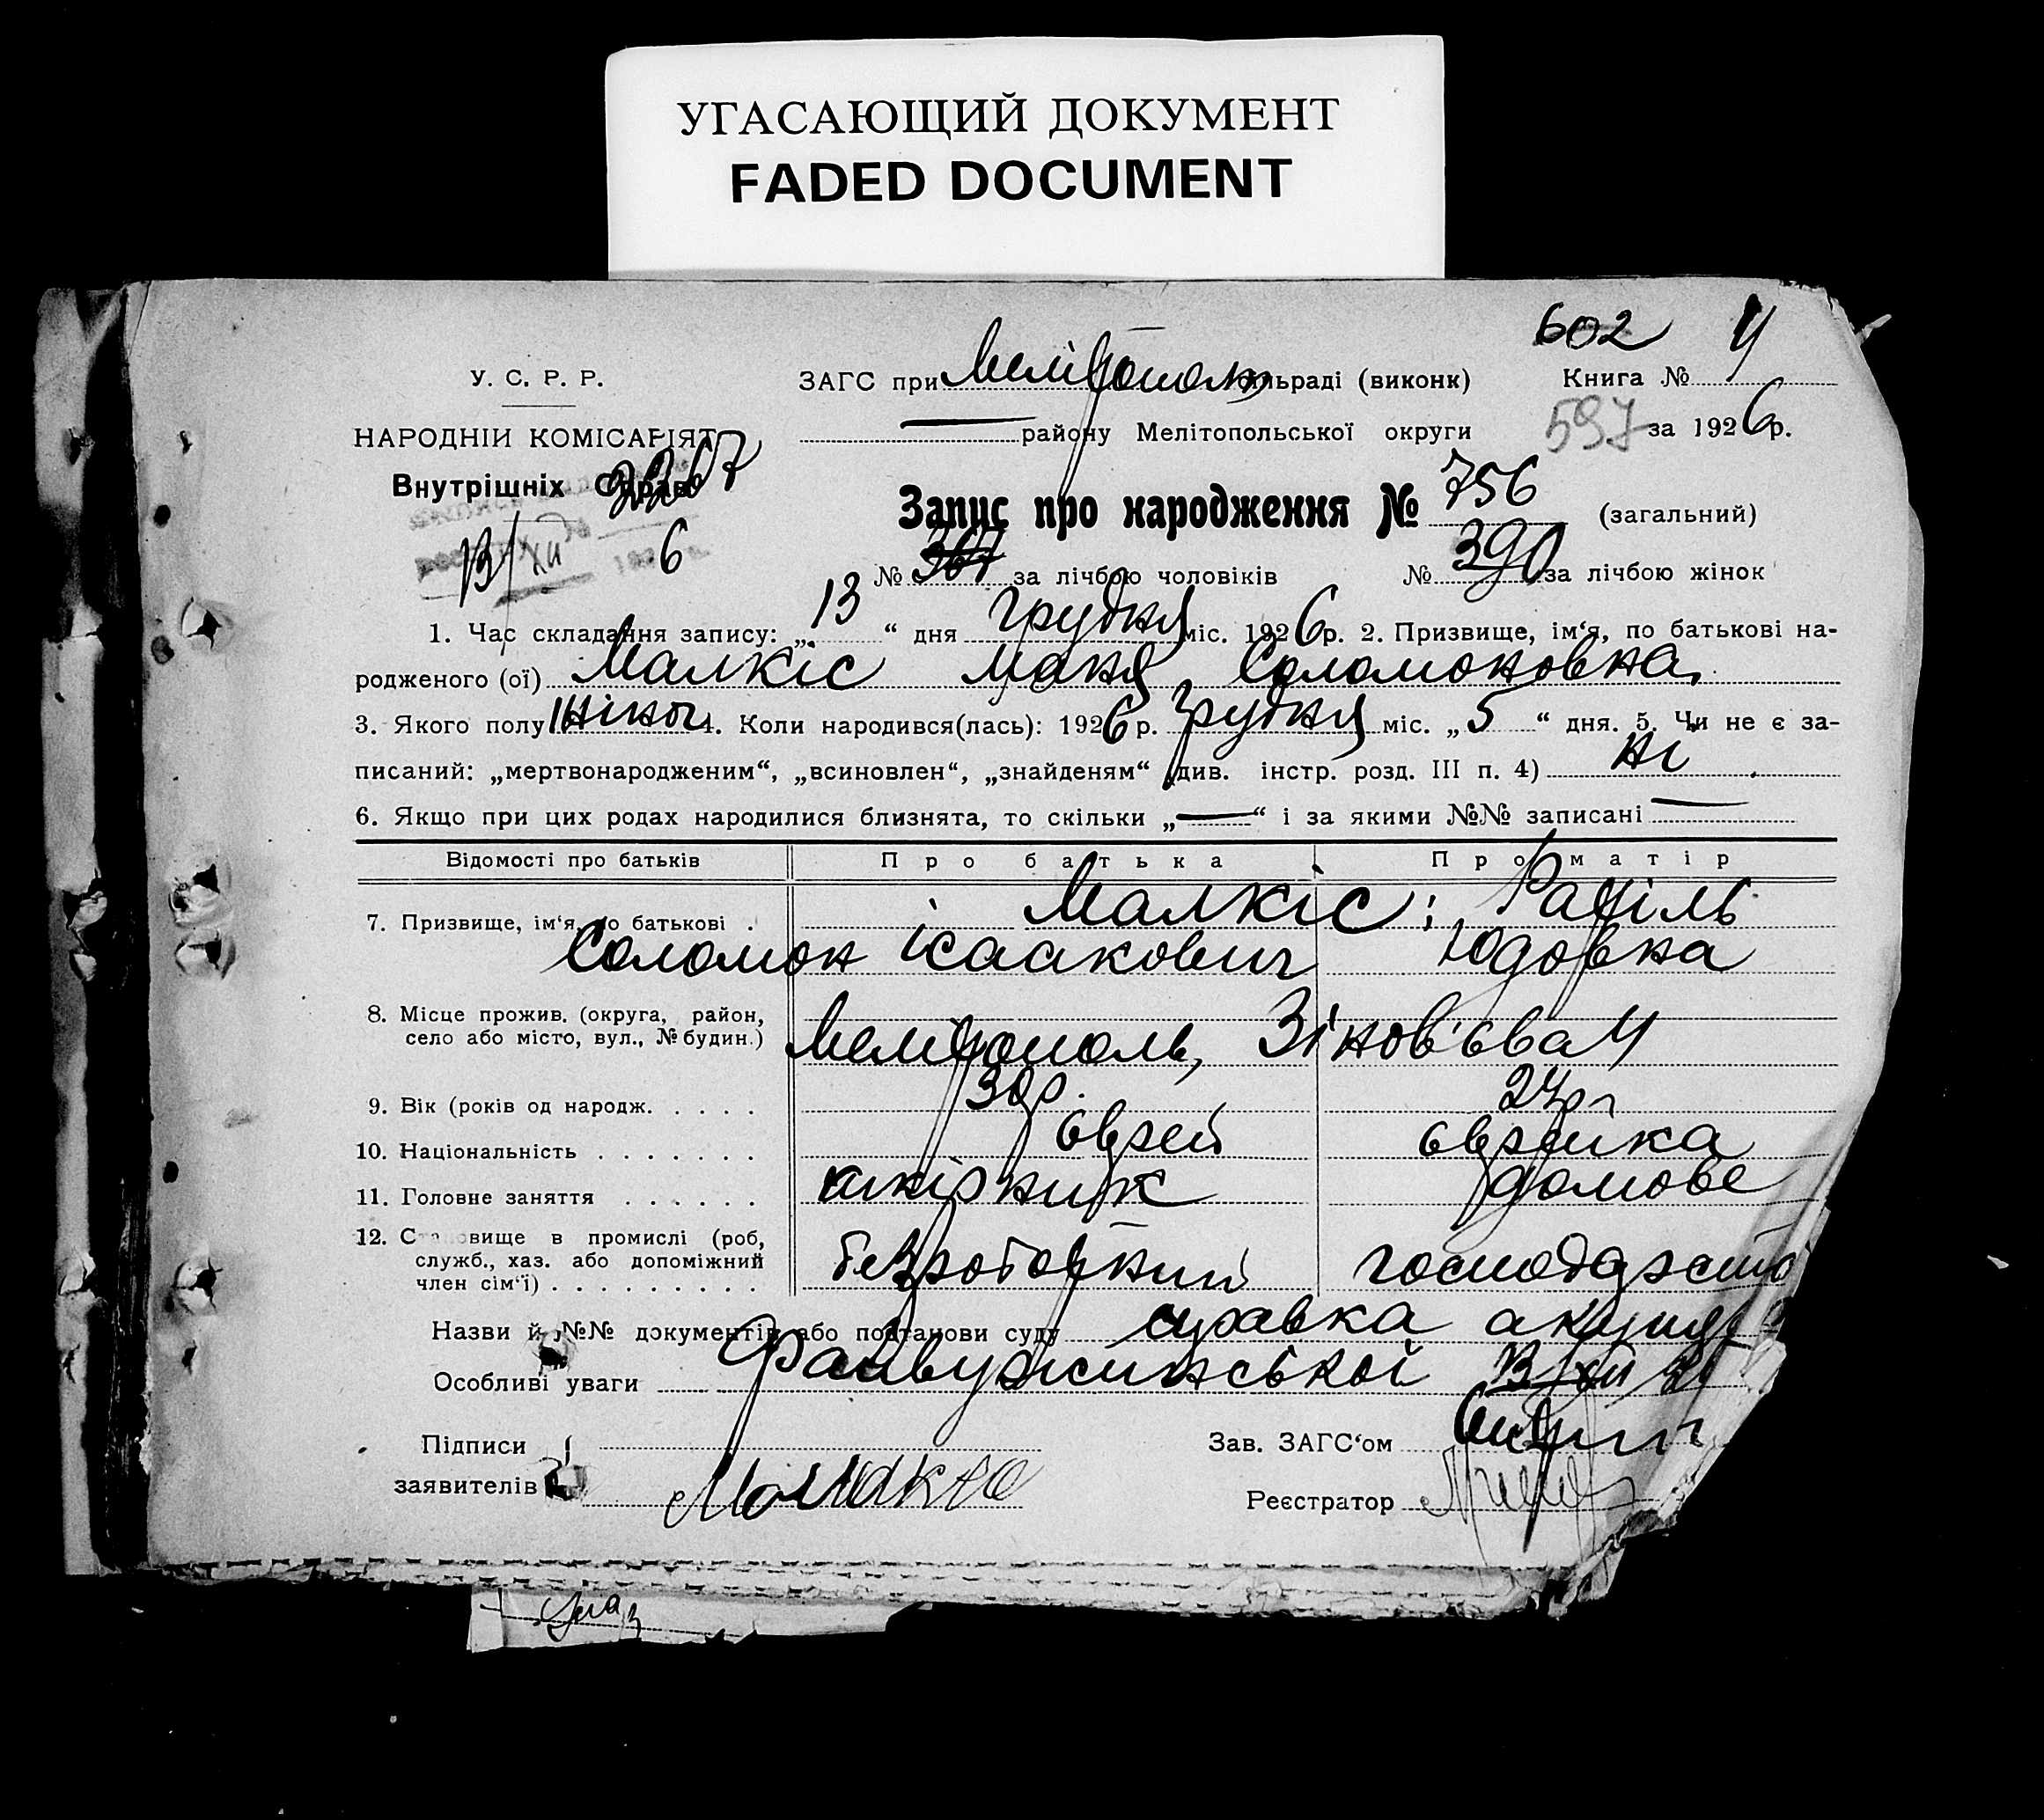 УГАСАЮЩИЙ ДОКУМЕНТ
FADED DOCUMENT
602 4
У. С. Р. Р. ЗАГС при Мелітополь сільраді (виконк) Книга № 4
НАРОДНІЙ КОМІСАРІЯТ району Мелітопольської округи 597 за 1926 р.
Внутрішніх Справ
Запис про народження № 756 (загальний)
13/XII 6
№ 367 за лічбою чоловіків № 390 за лічбою жінок
1. Час складання запису: „13“ дня грудня міс. 1926 р. 2. Призвище, ім‘я, по батькові на-
родженого (ої) Малкіс Маня Соломоновна
3. Якого полу жіноч 4. Коли народився(лась): 1926 р. грудня міс. „5“ дня. 5. Чи не є за-
писаний: „мертвонародженим“, „всиновлен“, „знайденям“ (див. інстр. розд. III п. 4) ні
6. Якщо при цих родах народилися близнята, то скільки „—“ і за якими №№ записані —
Відомості про батьків Про батька Про матір
7. Призвище, ім‘я, по батькові . Малкіс; Рахіль
Соломон Ісаакович Юдовна
8. Місце прожив. (округа, район,
село або місто, вул., № будин.) Мелітополь, Зінов'єва 4
9. Вік (років од народж. . . . . 30 р. 24 р.
10. Національність . . . . . . . єврей єврейка
11. Головне заняття . . . . . . шкірник домове
12. Становище в промислі (роб,
служб., хаз. або допоміжний безроботний господарство
член сім‘ї) . . . . . . . . .
Назви й №№ документів або постанови суду справка акушер
Особливі уваги 13/XII
Підписи Зав. ЗАГС‘ом
заявителів
Реєстратор